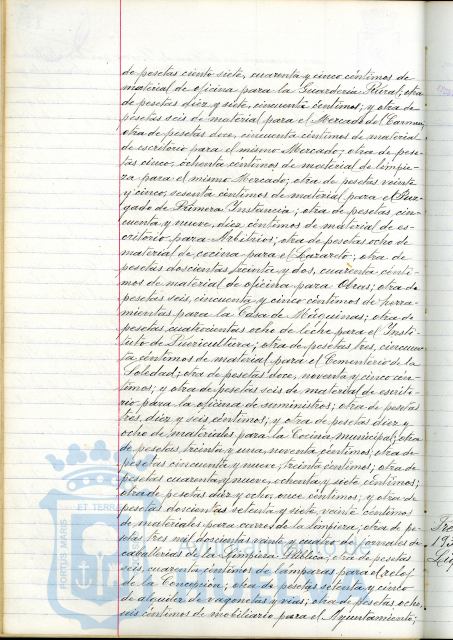 de pesetas ciento siete, cuarenta y cinco céntimos de
material de oficina para la Guardería Rural; otra
de pesetas diez y siete, cincuenta céntimos; y otra de
pesetas seis de material para el Mercado del Carmen;
otra de pesetas doce, cincuenta céntimos de material
de escritorio para el mismo Mercado; otra de pese-
tas cinco, ochenta céntimos de material de limpie-
za para el mismo Mercado; otra de pesetas veinte
y cinco, sesenta céntimos de material para el Juz-
gado de Primera Instancia; otra de pesetas cin-
cuenta y nueve, diez céntimos de material de es-
critorio para Arbitrios; otra de pesetas ocho de
material de cocina para el Lazareto; otra de
pesetas doscientas treinta y dos, cuarenta cénti-
mos de material de oficina para Obras; otra de
pesetas seis, cincuenta y cinco céntimos de herra-
mientas para la Casa de Máquinas; otra de
pesetas cuatrocientas ocho de leche para el Insti-
tuto de Puericultura; otra de pesetas tres, cincuen-
ta céntimos de material para el Cementerio de la
Soledad; otra de pesetas doce, noventa y cinco cén-
timos; y otra de pesetas seis de material de escrito-
rio para la oficina de suministros; otra de pesetas
tres, diez y seis céntimos; y otra de pesetas diez y
ocho de materiales para la Cocina municipal; otra
de pesetas treinta y una, noventa céntimos; otra de
pesetas cincuenta y nueve, treinta céntimos; otra de
pesetas cuarenta y nueve, ochenta y siete céntimos;
otra de pesetas diez y ocho, once céntimos; y otra de
pesetas doscientas setenta y siete, veinte céntimos
de materiales para carros de la limpieza; otra de pe-
setas tres mil doscientas veinte y cuatro de jornales de
caballerías de la Limpieza Pública; otra de pesetas
seis, cuarenta céntimos de lámparas para el reloj
de la Concepción; otra de pesetas setenta y cinco
de alquiler de vagonetas y vías; otra de pesetas ocho,
seis céntimos de mobiliario para el Ayuntamiento;
ET TERRA
FORTUS MARIS